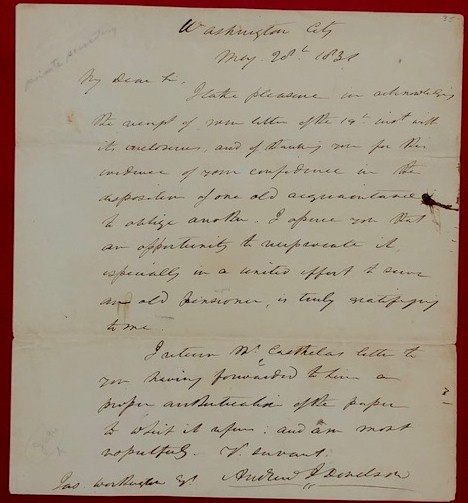 Washington City
May 28th 1831
private secretary
My dear Sir,
I take pleasure in acknowledging
the receipt of your letter of the 19th inst with
its enclosures, and of thanking you for this
evidence of your confidence in the
disposition of one old acquaintance
to oblige another. I assure you that
an opportunity to reciprocate it,
especially in a united effort to serve
an old pensioner, is truly gratifying
to me.
I return Mr. letter to
you having forwarded to him a
proper of the paper
to which it refers: and am most
respectfully Yr. servant,
Jas. Worthington Esqr Andrew J Donelson